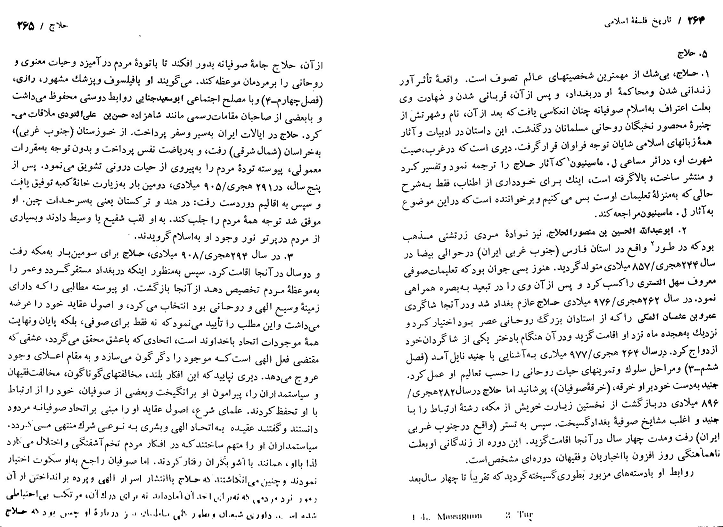 ۲۶۴ / تاریخ فلسفهٔ اسلامی
۵. حلاج
۱. حلاج، بی‌شک از مهمترین شخصیتهای عالم تصوف است. واقعهٔ تأثرآور
زندانی شدن ومحاکمهٔ او دربغداد، و پس ازآن، قربانی شدن و شهادت وی
بعلت اعتراف به‌اسلام صوفیانه چنان انعکاسی یافت که بعد ازآن، نام وشهرتش از
چنبرهٔ محصور نخبگان روحانی مسلمانان درگذشت. این داستان در ادبیات و آثار
همهٔ زبانهای اسلامی شایان توجه فراوان قرارگرفت. دیری است که درغرب، صیت
شهرت او، دراثر مساعی ل. ماسینیون¹ که‌آثار حلاج را ترجمه نمود وتفسیرکرد
و منتشر ساخت، بالاگرفته است، اینك برای خودداری از اطناب، فقط به‌شرح
حالی که به‌منزلهٔ تعلیمات اوست بس می‌کنیم وبرخواننده است که دراین موضوع
به‌آثار ل. ماسینیون مراجعه‌کند.
۲. ابوعبدالله الحسین بن منصورالحلاج، نیز نوادهٔ مردی زرتشتی مذهب
بود که در طور² واقع در استان فارس (جنوب غربی ایران) درحوالی بیضا در
سال ۲۴۴هجری/۸۵۷ میلادی متولدگردید. هنوز بسی جوان بودکه تعلیمات‌صوفی
معروف سهل التستری راکسب‌کرد و پس ازآن وی را در تبعید به‌بصره همراهی
نمود. در سال ۲۶۲هجری/۹۷۶ میلادی حلاج عازم بغداد شد ودرآنجا شاگردی
عمروبن عثمان المکی را که از استادان بزرگ روحانی عصر بود اختیارکرد و
نزدیك به‌هجده ماه نزد او اقامت گزید ودرآن هنگام بادختر یکی از شاگردان‌خود
ازدواج کرد. درسال ۲۶۴ هجری/۹۷۷ میلادی به‌آشنایی با جنید نایل‌آمد (فصل
ششم_۳) ومراحل سلوك وتمرینهای حیات روحانی را حسب تعالیم او عمل‌کرد.
جنید به‌دست خود براو خرقه، (خرقهٔ‌صوفیان)، پوشانید اما حلاج درسال ۲۸۲هجری/
۸۹۶ میلادی دربازگشت از نخستین زیارت خویش از مکه، رشتهٔ ارتباط را با
جنید و اغلب مشایخ صوفیهٔ بغدادگسیخت. سپس به تستر (واقع درجنوب غربی
ایران) رفت ومدت چهار سال درآنجا اقامت‌گزید. این دوره از زندگانی اوبعلت
ناهماهنگی روز افزون بااخباریان وفقیهان، دوره‌ای مشخص‌است.
روابط او بادسته‌های مزبور بطوری‌گسیخته‌گردید که تقریباً تا چهار سال‌بعد
1. L. Massignon 2. Tur
حلاج / ۲۶۵
ازآن، حلاج جامهٔ صوفیانه بدور افکند تا باتودهٔ مردم درآمیزد وحیات معنوی و
روحانی را برمردمان موعظه‌کند. می‌گویند او بافیلسوف وپزشك مشهور، رازی،
(فصل‌چهارم_۴) وبا مصلح اجتماعی ابوسعیدجنابی روابط دوستی محفوظ می‌داشت
و بابعضی از صاحبان مقامات‌رسمی مانند شاهزاده حسن‌بن علی‌التودی ملاقات می‌ـ
کرد. حلاج در ایالات ایران به‌سیر وسفر پرداخت. از خوزستان (جنوب غربی)،
به‌خراسان (شمال شرقی) رفت، و به‌ریاضت نفس پرداخت و بدون توجه به‌مقررات
معمولی، پیوسته تودهٔ مردم را به‌پیروی از حیات درونی تشویق می‌نمود. پس از
پنج سال، در ۲۹۱ هجری/۹۰۵ میلادی، دومین بار به‌زیارت خانهٔ کعبه توفیق یافت
و سپس به اقالیم دوردست رفت: در هند و ترکستان یعنی به‌سرحدات چین. او
موفق شد توجه همهٔ مردم را جلب‌کند. به او لقب شفیع یا وسیط دادند وبسیاری
از مردم درپرتو نور وجود او به‌اسلام‌گرویدند.
۳. در سال ۲۹۴هجری/۹۰۸ میلادی، حلاج برای سومین‌بار به‌مکه رفت
و دوسال درآنجا اقامت‌کرد. سپس به‌منظور اینکه دربغداد مستقرگردد وعمر را
به‌موعظهٔ مردم تخصیص دهد ازآنجا بازگشت. او پیوسته مطالبی راکه دارای
زمینهٔ وسیع الهی و روحانی بود انتخاب می‌کرد، و اصول عقاید خود را عرضه
می‌داشت واین مطلب را تأیید می‌نمودکه نه فقط برای صوفی، بلکه پایان ونهایت
همهٔ موجودات اتحاد باخداوند است، اتحادی‌که باعشق محقق می‌گردد، عشقی‌که
مقتضی فعل الهی‌است که موجود را دگرگون می‌سازد و به مقام اعلای وجود
عروج می‌دهد. دیری نپایید که این افکار بلند، مخالفتهای‌گوناگون، مخالفت‌فقیهان
و سیاستمداران را، پیرامون او برانگیخت وبعضی از صوفیان، خود را از ارتباط
با او تحفظ‌کردند. علمای شرع، اصول عقاید او را مبنی براتحاد صوفیانه مردود
دانستند وگفتند عقیده به‌اتحاد الهی وبشری به نوعی شرك منتهی می‌گردد،
سیاستمداران او را متهم ساختندکه در افکار مردم تخم‌آشفتگی واختلال می‌کارد
لذا بااو، همانند با آشوبگران رفتارکردند. اما صوفیان راجع به‌او سکوت اختیار
نمودند وچنین می‌انگاشتند که حلاج باانتشار اسرار الهی وپرده برانداختن از آن